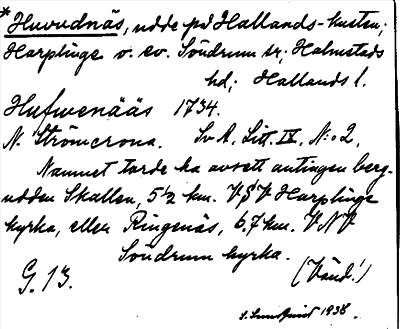 * Huvudnäs, udde på Hallands-kusten;
Harplinge o. ev. Söndrum sr; Halmstads
hd; Hallands l.
Hufwenääs 1734.
N. Strömcrona. SvA, Litt. IV, N:o 2.
Namnet torde ha avsett antingen berg-
udden Skallen, 5 1/2 km. VSV Harplinge
kyrka, eller Ringenäs, 6.7 km. VNV
Söndrum kyrka.
G. 13.
(Vänd!)
S. Lundquist 1938.